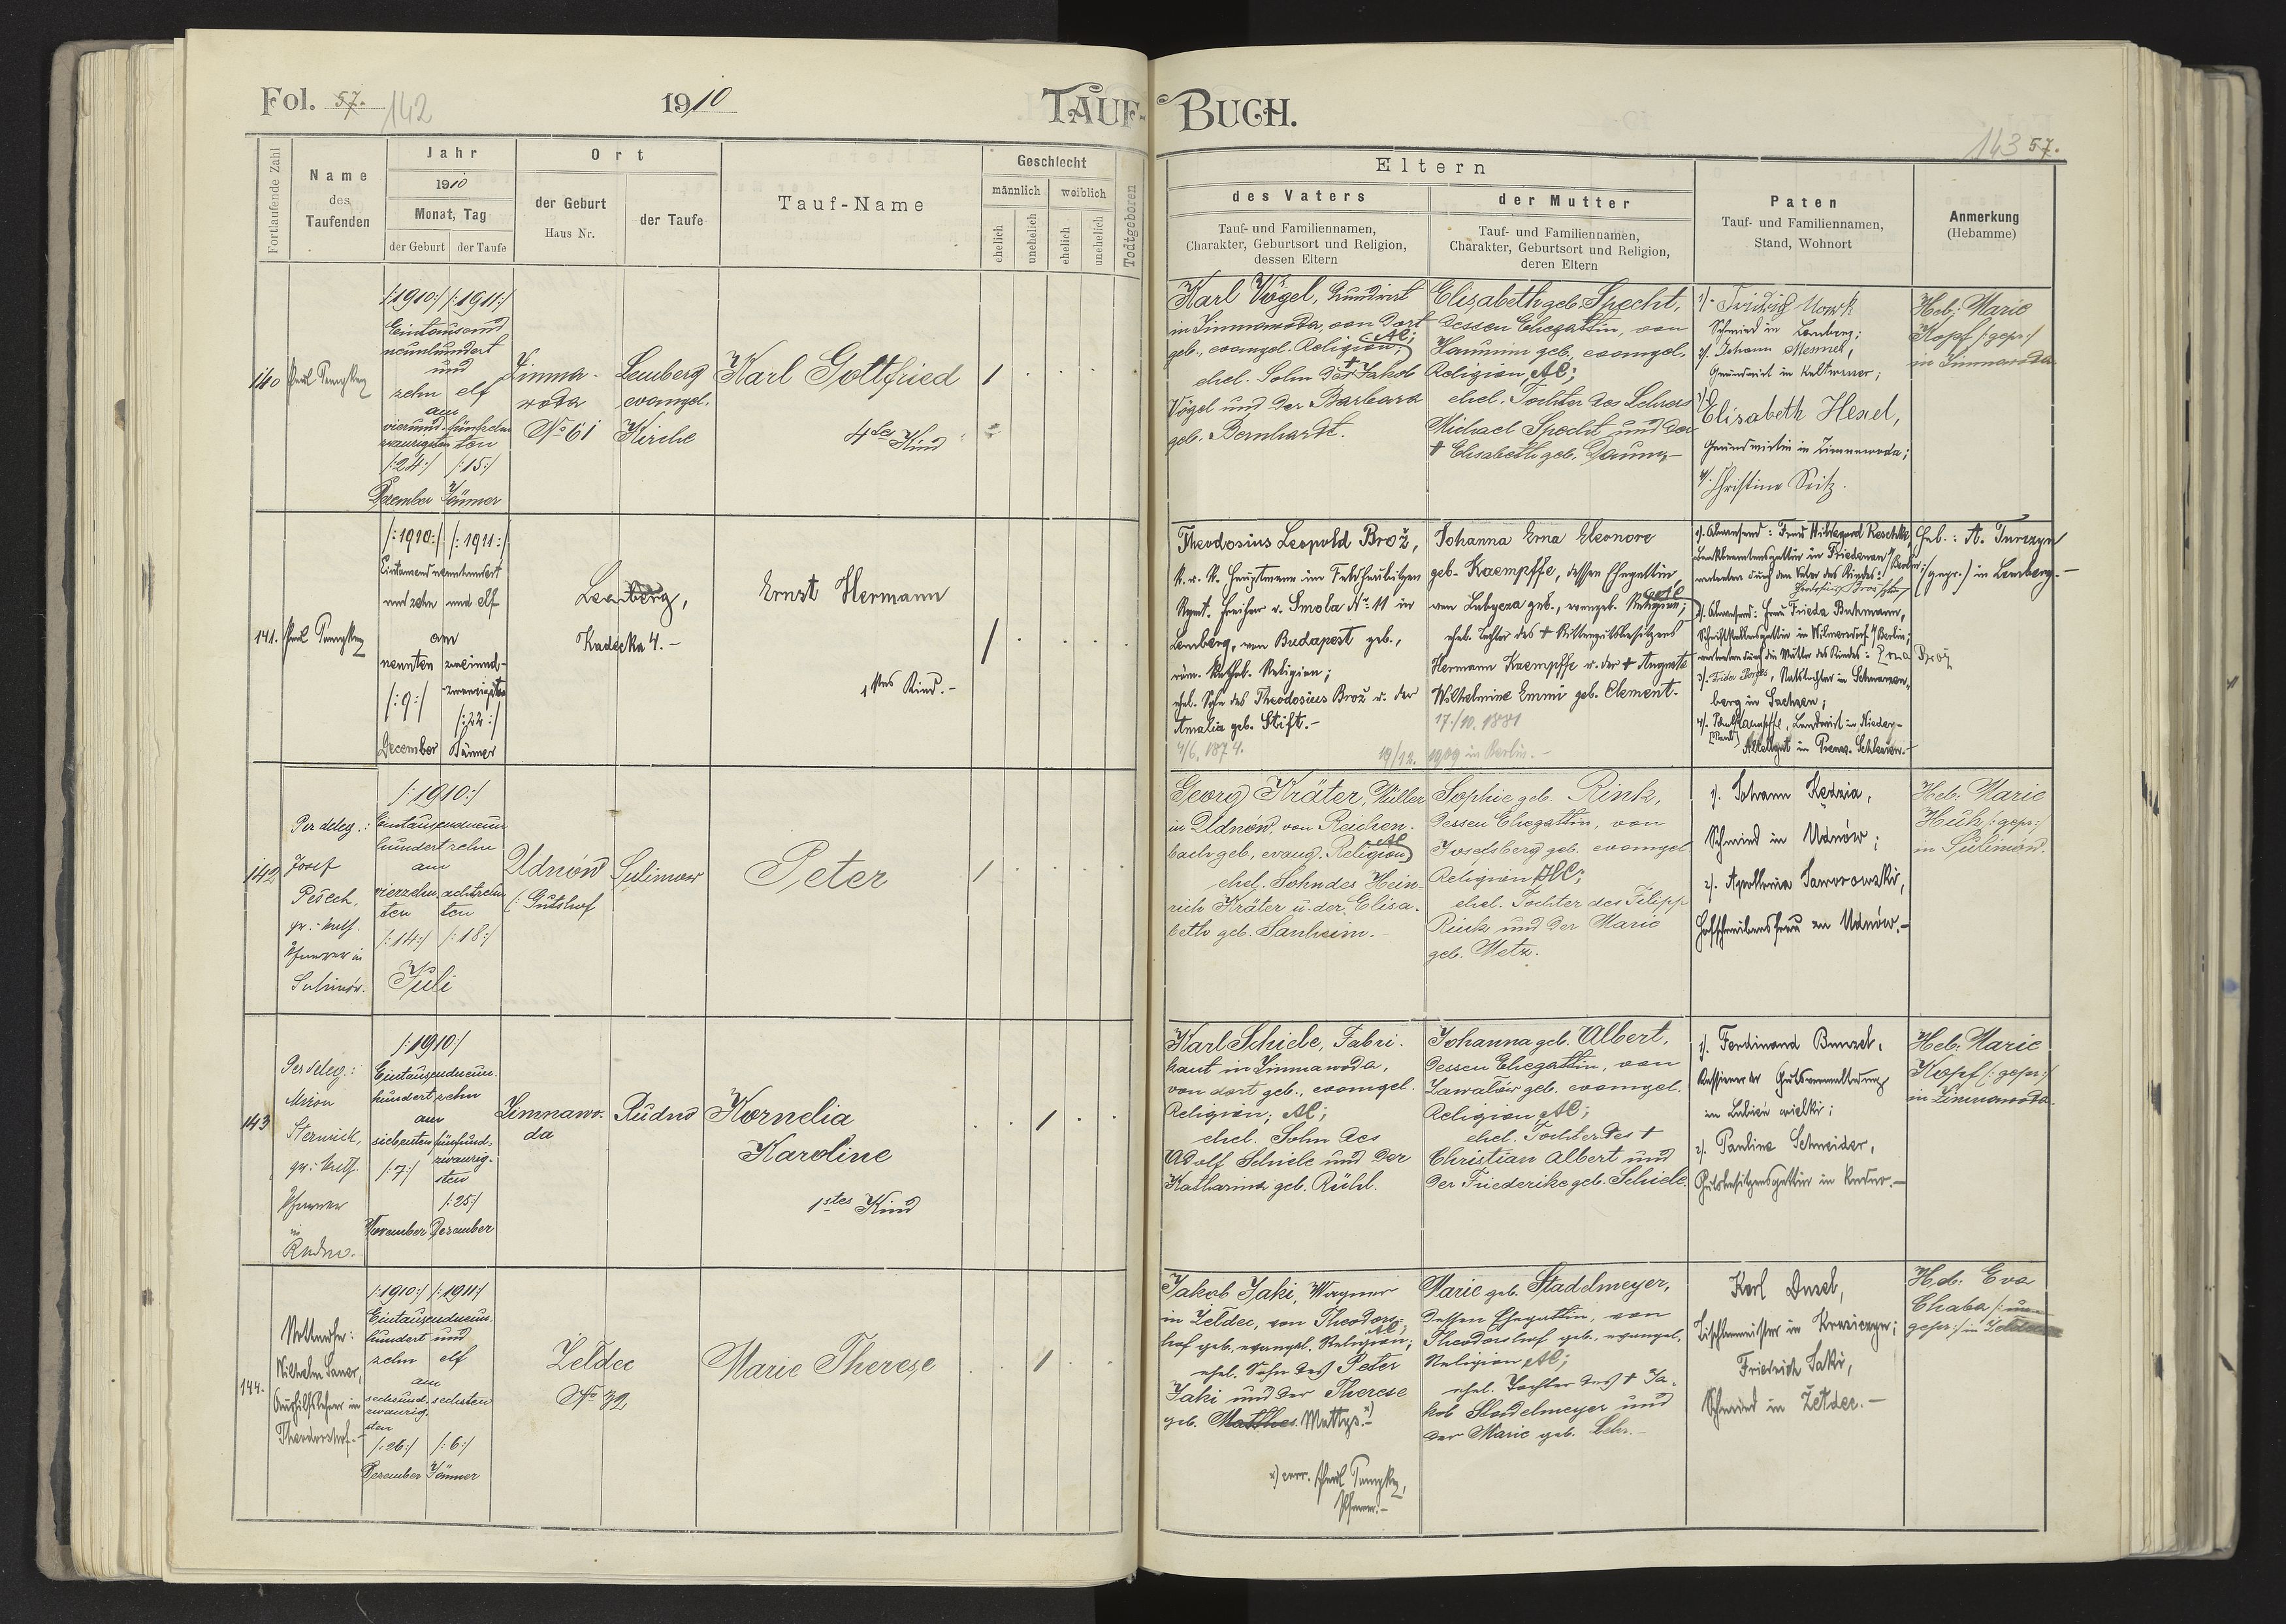 Fol. 57.
142
1910
TAUF-BUCH.
143 57.
Fortlaufende Zahl
Name
des
Taufenden
Jahr
1910
Monat, Tag
der Geburt
der Taufe
Ort
der Geburt
Haus Nr.
der Taufe
Tauf-Name
Geschlecht
männlich
weiblich
ehelich
unehelich
ehelich
unehelich
Todtgeboren
Eltern
des Vaters
Tauf- und Familiennamen,
Charakter, Geburtsort und Religion,
dessen Eltern
der Mutter
Tauf- und Familiennamen,
Charakter, Geburtsort und Religion,
deren Eltern
Paten
Tauf- und Familiennamen,
Stand, Wohnort
Anmerkung
(Hebamme)
140
/:1910:/ /:1911:/
Eintausend
neunhundert
und
zehn elf
am
vierund- fünfzehn
zwanzigsten ten
/:24:/ /:15:/
Dezember Jänner
Zimna-
woda
No 61
Lemberg
evangel.
Kirche
Karl Gottfried
4tes Kind
1
Karl Vögel, Grundwirt
in Zimnawoda, von dort
geb., evangel. Religion, AC;
ehel. Sohn des † Jakob
Vögel und der Barbara
geb. Bernhardt.
Elisabeth geb. Specht,
dessen Ehegattin, von
geb., evangel.
Religion, AC;
ehel. Tochter des Lehrers
Michael Specht und der
† Elisabeth geb. Daum.-
Schmied in Lemberg;
2/. Johann
Grundwirt in
3/.
Elisabeth Hexel,
Grundwirtin in Zimnawoda;
4/. Christine Seitz.
Heb: Marie
Kopf /:gepr:/
in Zimnawoda.
141.
/:1910:/ /:1911:/
Eintausend neunhundert
und zehn und elf
am
neunten zweiund-
zwanzigsten
/:9:/ /:22:/
December Jänner
Lemberg,
Kadecka 4.-
Ernst Hermann
1tes Kind.-
1
Theodosius Leopold Brož,
K. u. K. Hauptmann im Feldhaubitzen
Regmt. Freiherr v. Smola No 11 in
Lemberg, von Budapest geb.,
röm. kathol. Religion;
ehel. Sohn des Theodosius Brož u. der
Amalia geb. Stift.-
4/6. 1874.
Johanna Erna Eleonore
geb. Kaempffe, dessen Ehegattin
von Lubycza geb., evangel. Religion;
ehel. Tochter des † Rittergutsbesitzers
Hermann Kaempffe u. der † Auguste
Wilhelmine Emmi geb. Clement.-
17./10. 1881
19/12. 1909 in Berlin.-
1/. Abwesend: Frau Hildegard Reschke,
Bankbeamtensgattin in Friedenau /Berlin/
vertreten durch den Vater des Kindes:
2/. Abwesend: Frau Frieda Buhmann,
in Wilmersdorf /Berlin;
vertreten durch die Mutter des Kindes: Erna Brož
3/. in Schwarzen-
berg in Sachsen;
4/. Paul Kaempffe, Landwirt in Nieder-
Altellgut in Preuss. Schlesien.-
Heb.: A. Turczyn
/:gepr:/ in Lemberg.-
142
Per deleg.:
Josef
Pešech,
gr.-kath.
Pfarrer in
Sulimów.
/:1910:/
Eintausendneun
hundert zehn
am
vierzehn- achtzehn
ten ten
/:14:/ /:18:/
Juli
Udnów
/: Gutshof
Sulimow
Peter
1
Georg Kräter, Müller
in Udnów, von Reichen-
bach geb., evang. Religion AC
ehel. Sohn des Hein-
rich Kräter u. der Elisa-
beth geb. Sanheim.-
Sophie geb. Rink,
dessen Ehegattin, von
Josefsberg geb. evangel.
Religion HC;
ehel. Tochter des Filipp
Rink und der Marie
geb. Metz.
1/. Johann Kędzia,
Schmied in Udnów;
2/. Apollonia Jaworowski,
in Udnów.-
Heb. Marie
Huk /:gepr:/
in Sulimów.
143
Per deleg.:
Miron
gr.-kath.
Pfarrer
in
Rudno.
/:1910:/
Eintausendneun-
hundert zehn
am
siebenten fünfund-
zwanzig-
sten
/:7:/ /:25:/
November Dezember
Zimnawo-
da
Rudno
Kornelia
Karoline
1stes Kind
1
Karl Schiele, Fabri-
kant in Zimnawoda,
von dort geb., evangel.
Religion; AC;
ehel. Sohn des
Adolf Schiele und der
Katharina geb. Rühl.
Johanna geb. Albert,
dessen Ehegattin, von
Zawałów geb. evangel.
Religion AC;
ehel. Tochter des †
Christian Albert und
der Friederike geb. Schiele.
1/. Ferdinand Bunzel,
Kassierer der Gutsverwaltung
in Lubień wielki;
2/. Pauline Schneider,
Gutsbesitzersgattin in Rudno.-
Heb. Marie
Kopf /:gepr:/
in Zimnawoda.
144.
Nottaufe:
Wilhelm Sauer,
Aushilfslehrer in
Theodorshof.-
/:1910:/ /:1911:/
Eintausendneun-
hundert und
zehn elf
am
sechsund- sechsten
zwanzig-
sten
/:26:/ /:6:/
Dezember Jänner
Żeldec
No 32
Marie Therese
1
Jakob Jaki, Wagner
in Żeldec, von Theodors-
hof geb., evangel. Religion; AC;
ehel. Sohn des Peter
Jaki und der Therese
geb. Matthes. Mattys.-x)
x) corr.
Pfarrer.-
Marie geb. Stadelmeyer,
dessen Ehegattin, von
Theodorshof geb., evangel.
Religion AC;
ehel. Tochter des † Ja-
kob Stadelmeyer und
der Marie geb. Lehr.-
Karl
Tischlermeister in
Friedrich Jaki,
Schmied in Żełdec.-
Heb: Eva
Chaba /:un-
gepr:/ in